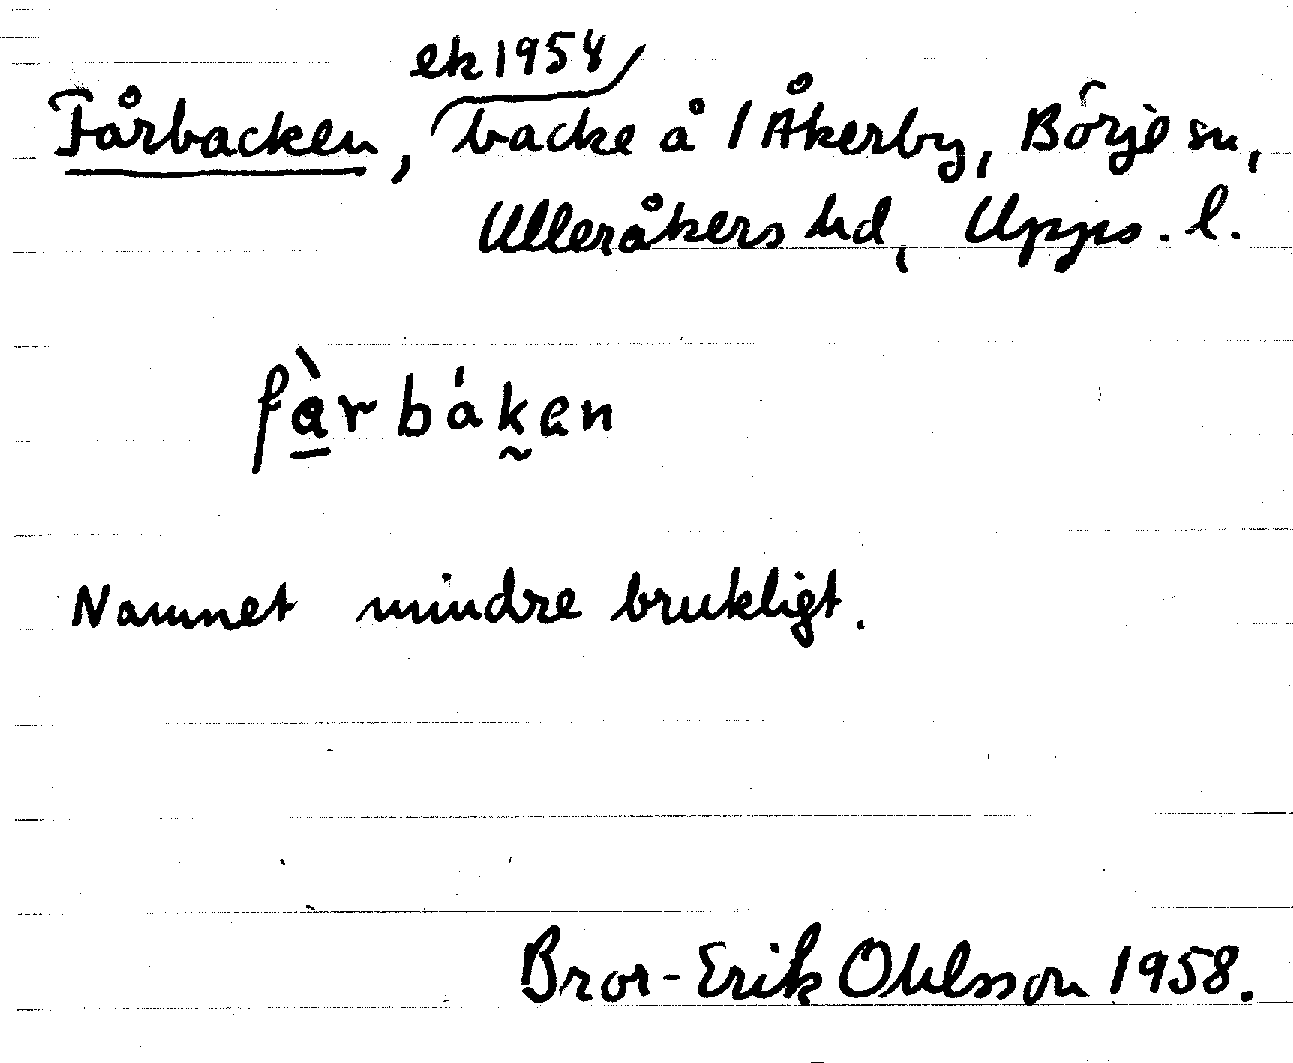 ek 1954
Fårbacken, backe å 1 Åkerby, Börje sn,
Ulleråkers hd, Upps. l.
fàrbáken
Namnet mindre brukligt.
Bror-Erik Ohlsson 1958.